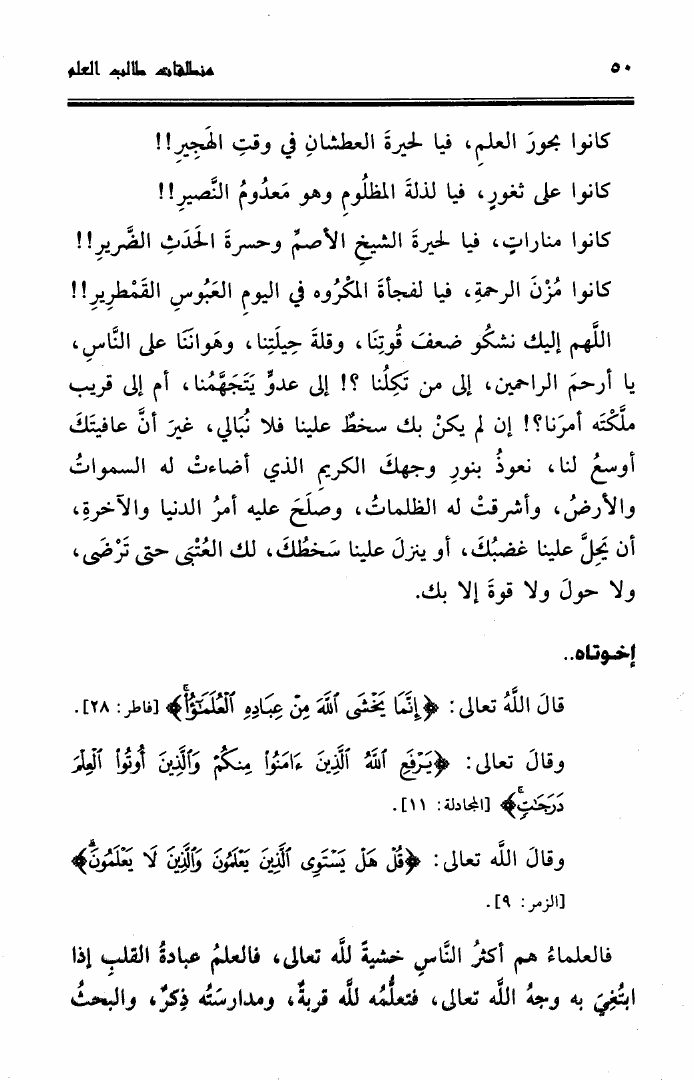 ٥٠ منطلقات طالب العلم
كانوا بحورَ العلمِ، فيا لحيرةَ العطشانِ في وقتِ الهَجِيرِ!!
كانوا على ثغورٍ، فيا لذلةَ المظلُومِ وهو مَعدُومُ النَّصيرِ!!
كانوا مناراتٍ، فيا لحيرةَ الشيخِ الأصمِّ وحسرةَ الحَدَثِ الضَّريرِ!!
كانوا مُزْنَ الرحمةِ، فيا لفجأةَ المكْرُوه في اليومِ العَبُوسِ القَمْطرِيرِ!!
اللَّهم إليك نشكُو ضعفَ قُوتِنَا، وقلةَ حِيلَتِنا، وهَوانَنَا على النَّاسِ،
يا أرحمَ الراحمين، إلى من تَكِلُنا ؟! إلى عدوٍّ يَتَجَهَّمُنا، أم إلى قريب
ملَّكْتَه أمرَنا؟! إن لم يكنْ بك سخطٌ علينا فلا نُبَالي، غيرَ أنَّ عافيتَكَ
أوسعُ لنا، نعوذُ بنورِ وجهكَ الكريمِ الذي أضاءتْ له السمواتُ
والأرضُ، وأشرقتْ له الظلماتُ، وصلَحَ عليه أمرُ الدنيا والآخرةِ،
أن يَحِلَّ علينا غضبُكَ، أو ينزلَ علينا سَخطُكَ، لك العُتْبَى حتى تَرْضَى،
ولا حولَ ولا قوةَ إلا بك.
إخوتاه..
قالَ اللَّهُ تعالى: ﴿إِنَّمَا يَخْشَى ٱللَّهَ مِنْ عِبَادِهِ ٱلْعُلَمَـٰٓؤُاْۗ﴾ [فاطر: ٢٨].
وقالَ تعالى: ﴿يَرْفَعِ ٱللَّهُ ٱلَّذِينَ ءَامَنُواْ مِنكُمْ وَٱلَّذِينَ أُوتُواْ ٱلْعِلْمَ
دَرَجَـٰتٍۚ﴾ [المجادلة: ١١].
وقالَ اللَّه تعالى: ﴿قُلْ هَلْ يَسْتَوِى ٱلَّذِينَ يَعْلَمُونَ وَٱلَّذِينَ لَا يَعْلَمُونَۗ﴾
[الزمر: ٩].
فالعلماءُ هم أكثرُ النَّاسِ خشيةً للَّه تعالى، فالعلمُ عبادةُ القلبِ إذا
ابتُغِيَ به وجهُ اللَّه تعالى، فتعلُّمُه للَّه قربةٌ، ومدارسَتُه ذِكرٌ، والبحثُ